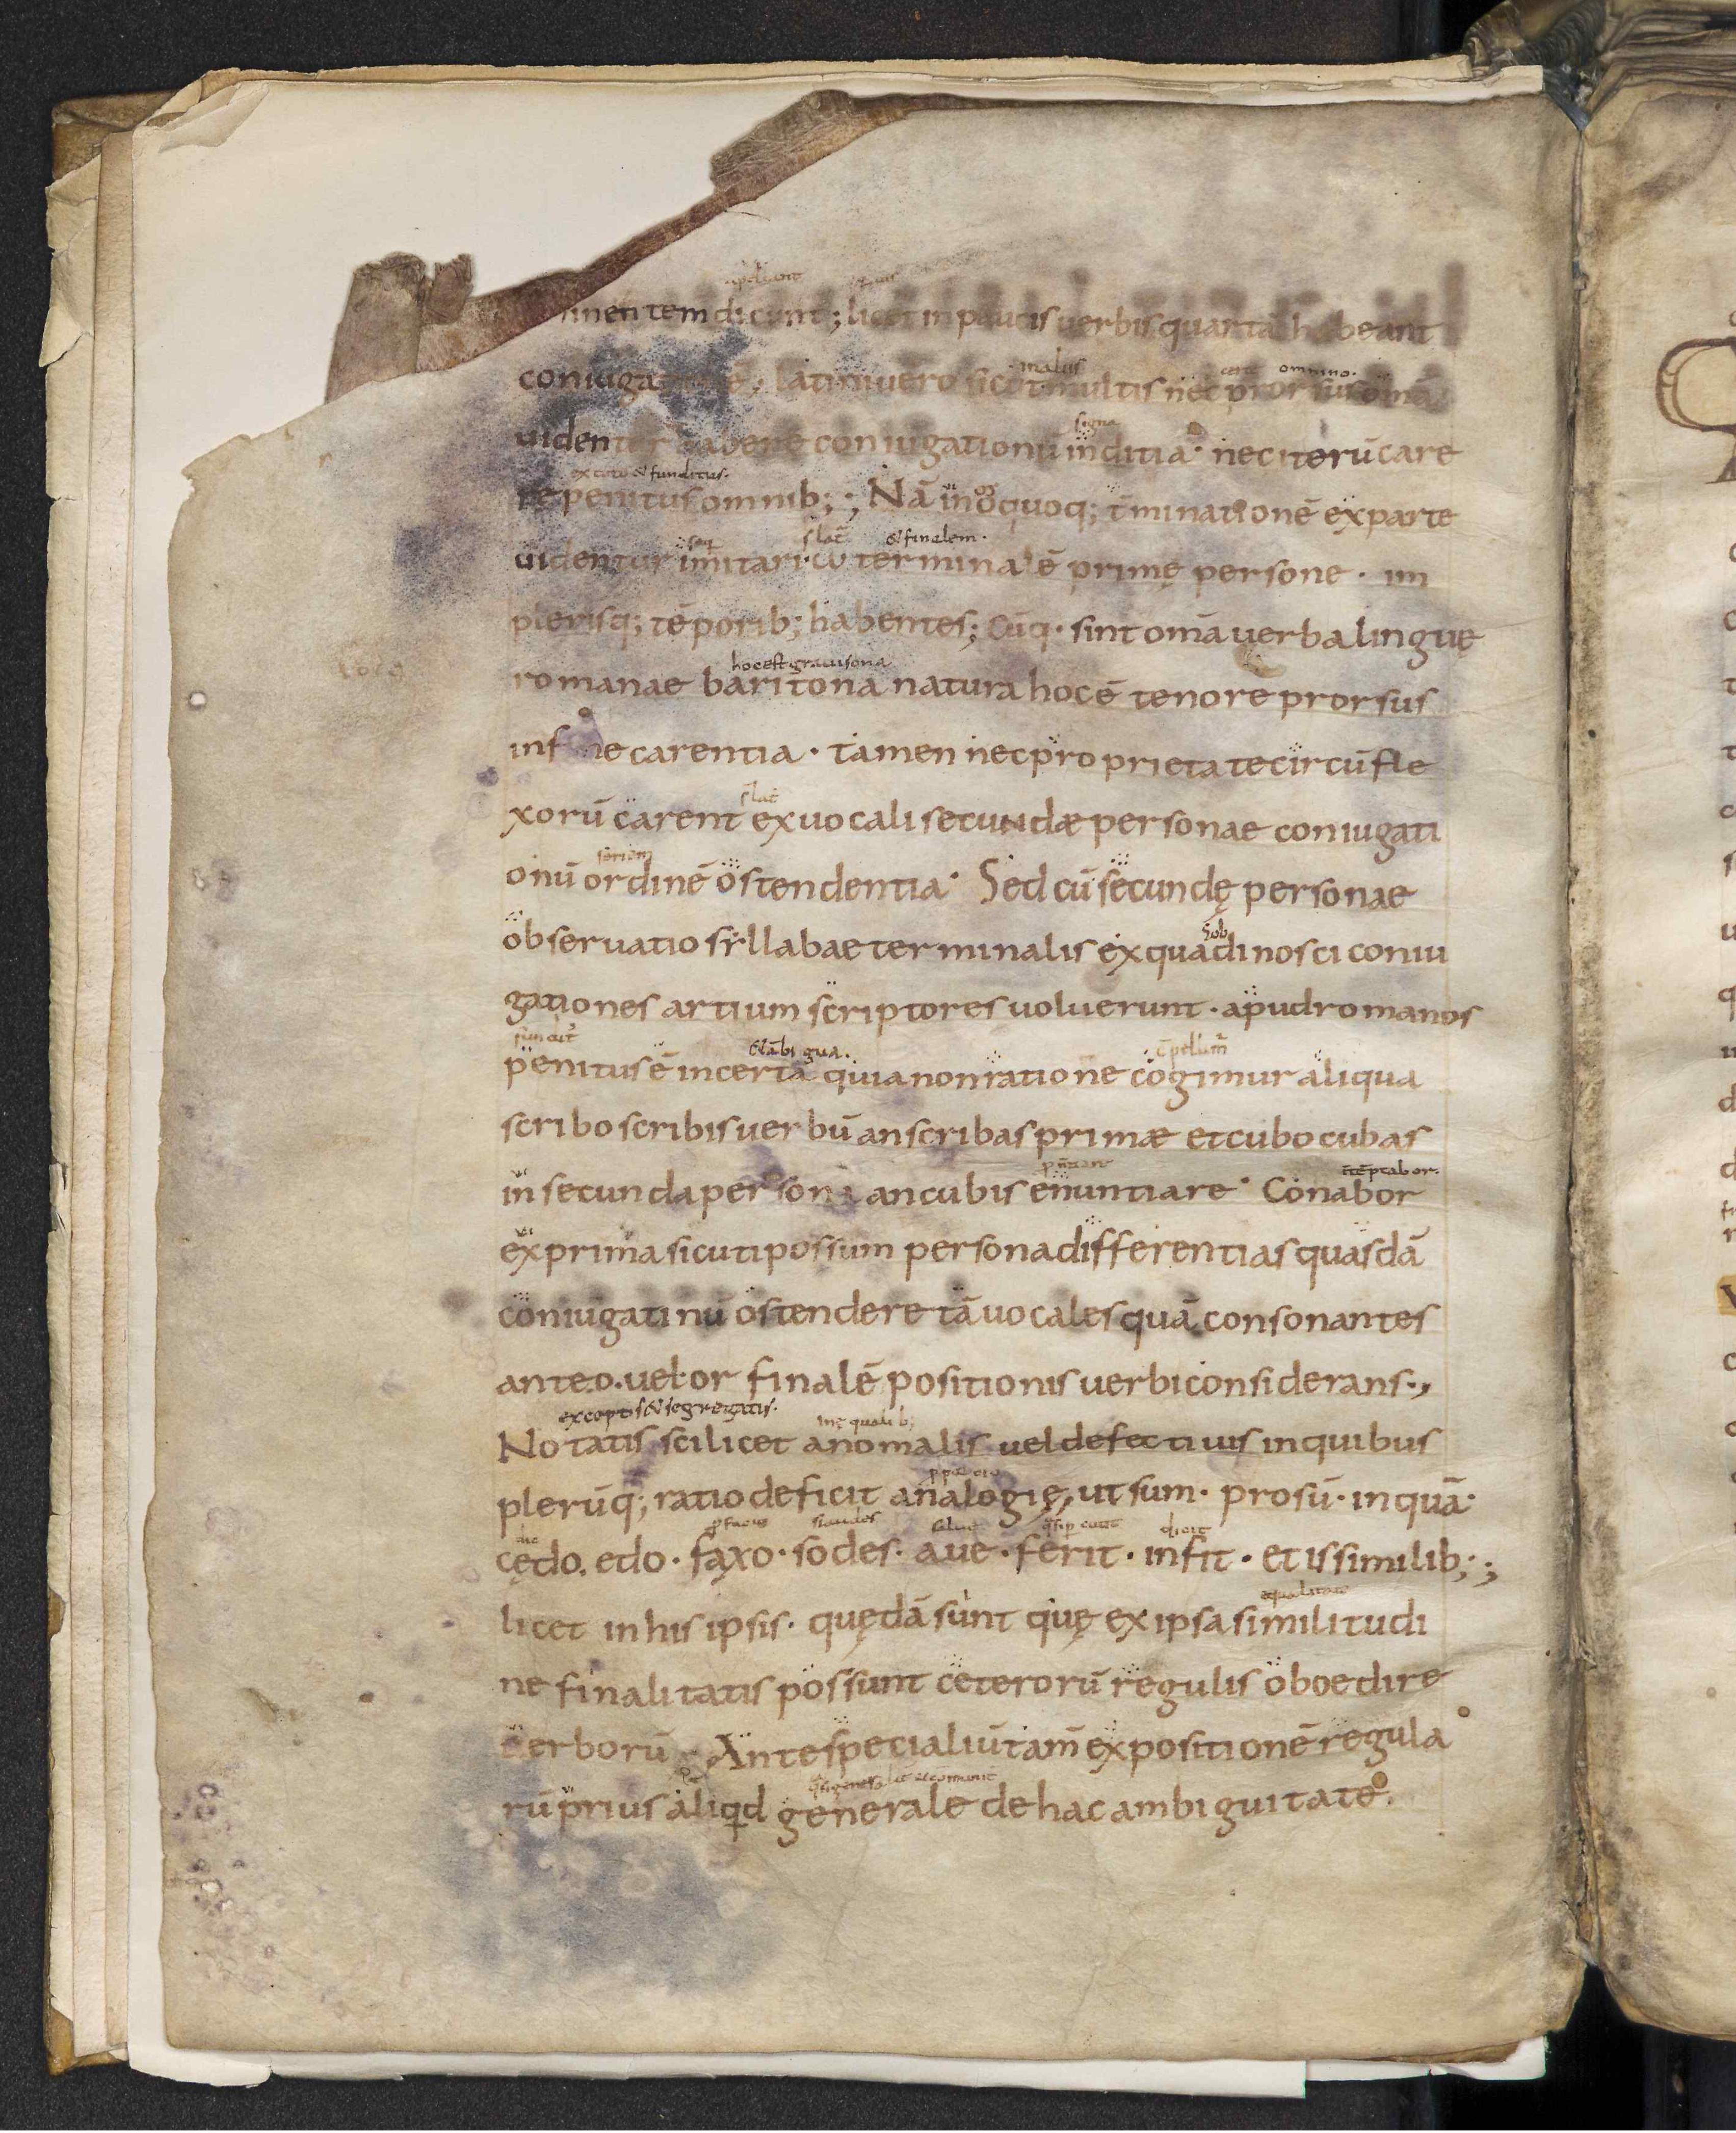 inentem dicunt; licet in paucis uerbis quartā habeant
coniuga latini uero sicut multis nec prorsus omā
malus omnino.
uidentur habere coniugationū inditia· nec iterū care
signa
re penitus omnib;; Nā in quoq; t̄minationē ex parte
ex toto & funditus.
uidentur imitari· ω terminalē primę persone· im
& finalem.
plerisq; tēporib; habentes; Cūq· sint omā uerba linguę
romanae baritona natura hoc ē tenore prorsus
hoc est grauisona
in fine carentia· tamen nec proprietate circūfle
xorū carent ex uocali secundæ personae coniugati
onū ordinē ostendentia· Sed cū secundę personae
seriem
obseruatio sẏllabae terminalis ex qua dinosci coniu
gationes artium scriptores uoluerunt· apud romanos
penitus ē incerta quia non ratione cogimur aliqua
&ābigua.
scribo scribis uerbū an scribas primæ et cubo cubas
in secunda persona an cubis enuntiare· Conabor
ex prima sicuti possum persona differentias quasdā
coniugatinū ostendere tā uocales quā consonantes
ante.o.uel·or finalē positionis uerbi considerans·,
Notatis scilicet anomalis uel defectiuis in quibus
exceptis & segregatis.
inęqualib;
plerūq; ratio deficit analogię, ut sum· prosū· inquā·
cędo. edo· fąxo· sodes· aue· ferit· infit· et is similib;;
dic siaudes dicit
licet in his ipsis· quędā sunt quę ex ipsa similitudi
equalitate
ne finalitatis possunt ceterorū regulis oboedire
uerborū Ante specialiū tam̄ expositionē regula
rū prius aliqd generale de hac ambiguitate.